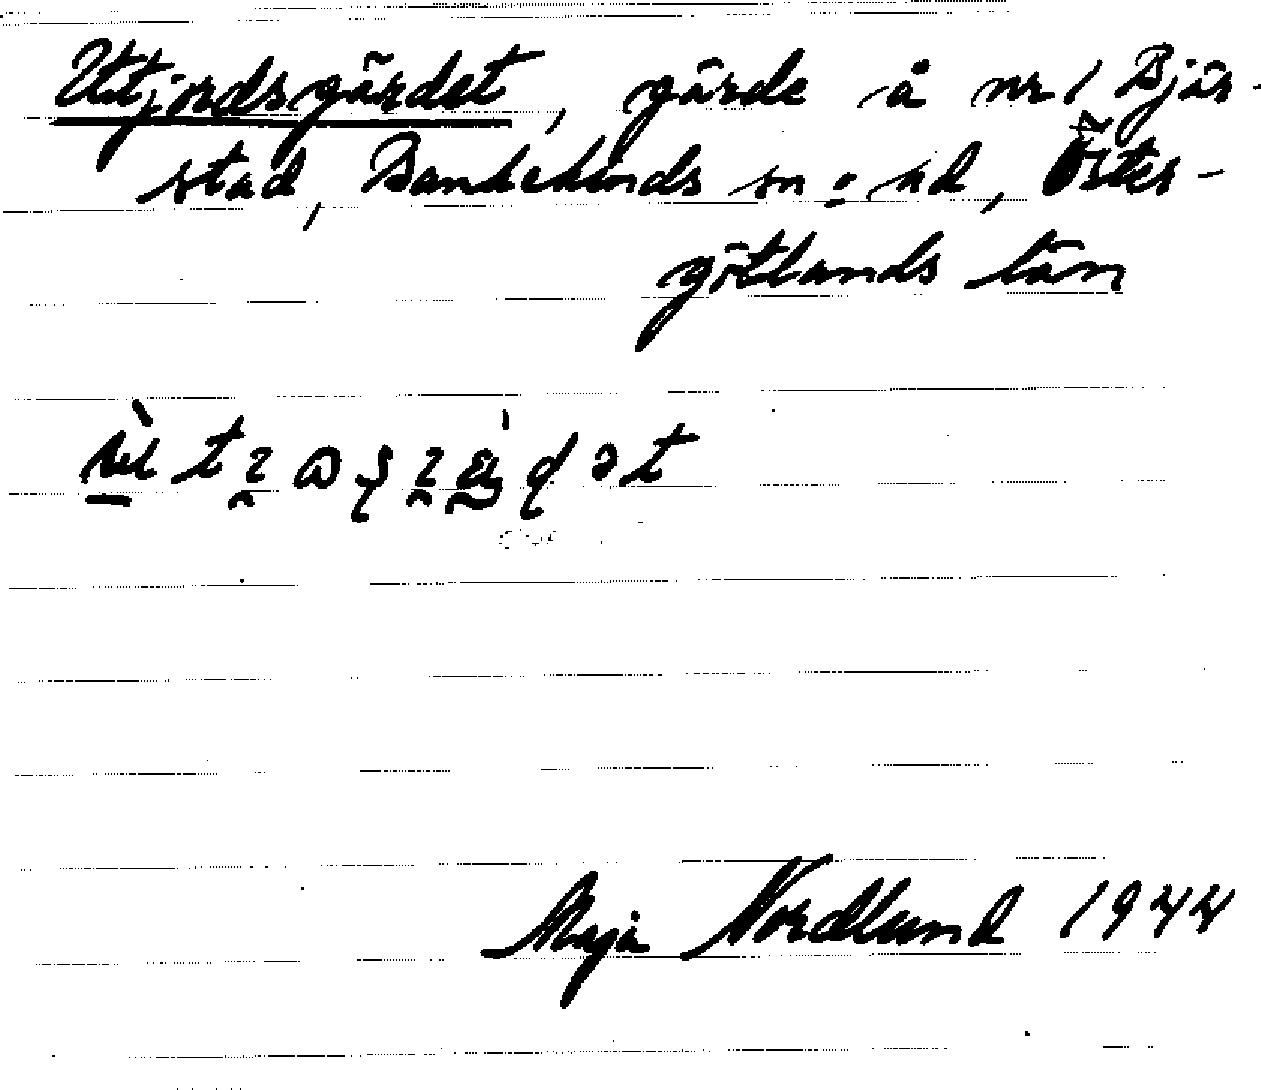 Utjordsgärdet, gärde å nr 1 Bjär-
stad, Bankekinds sn o. hd, Öster-
götlands län
Maja Nordlund 1944